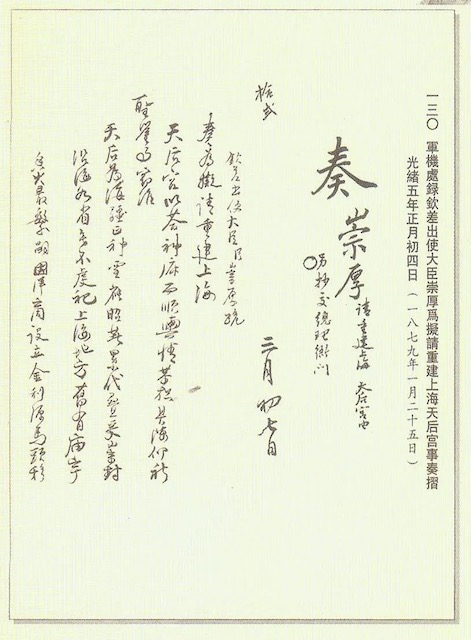 一三〇 軍機處録欽差出使大臣崇厚爲擬請重建上海天后宫事奏摺
光緒五年正月初四日(一八七九年一月二十五日)
奏 崇厚 請重建上海 天后宫由
○另抄交總理衙門
三月初七日
拾弍
欽差出使大臣臣崇厚跪
奏爲擬請重建上海
天后宫以荅神庥而順輿情恭摺具陳仰祈
聖鑒事竊惟
天后爲海疆正神靈應昭著累代封
沿海各省無不虔祀上海地方舊有廟宇
嗣因洋商設立金利源馬頭移